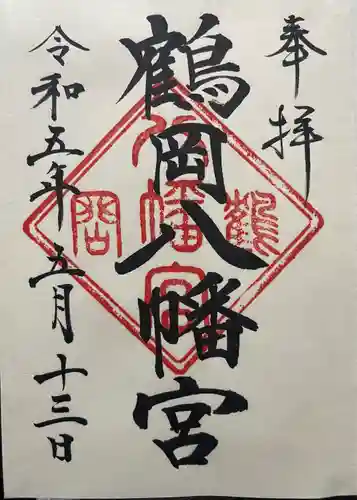 奉拝
鶴岡八幡宮
令和五年五月十三日
鶴
八幡宮
岡